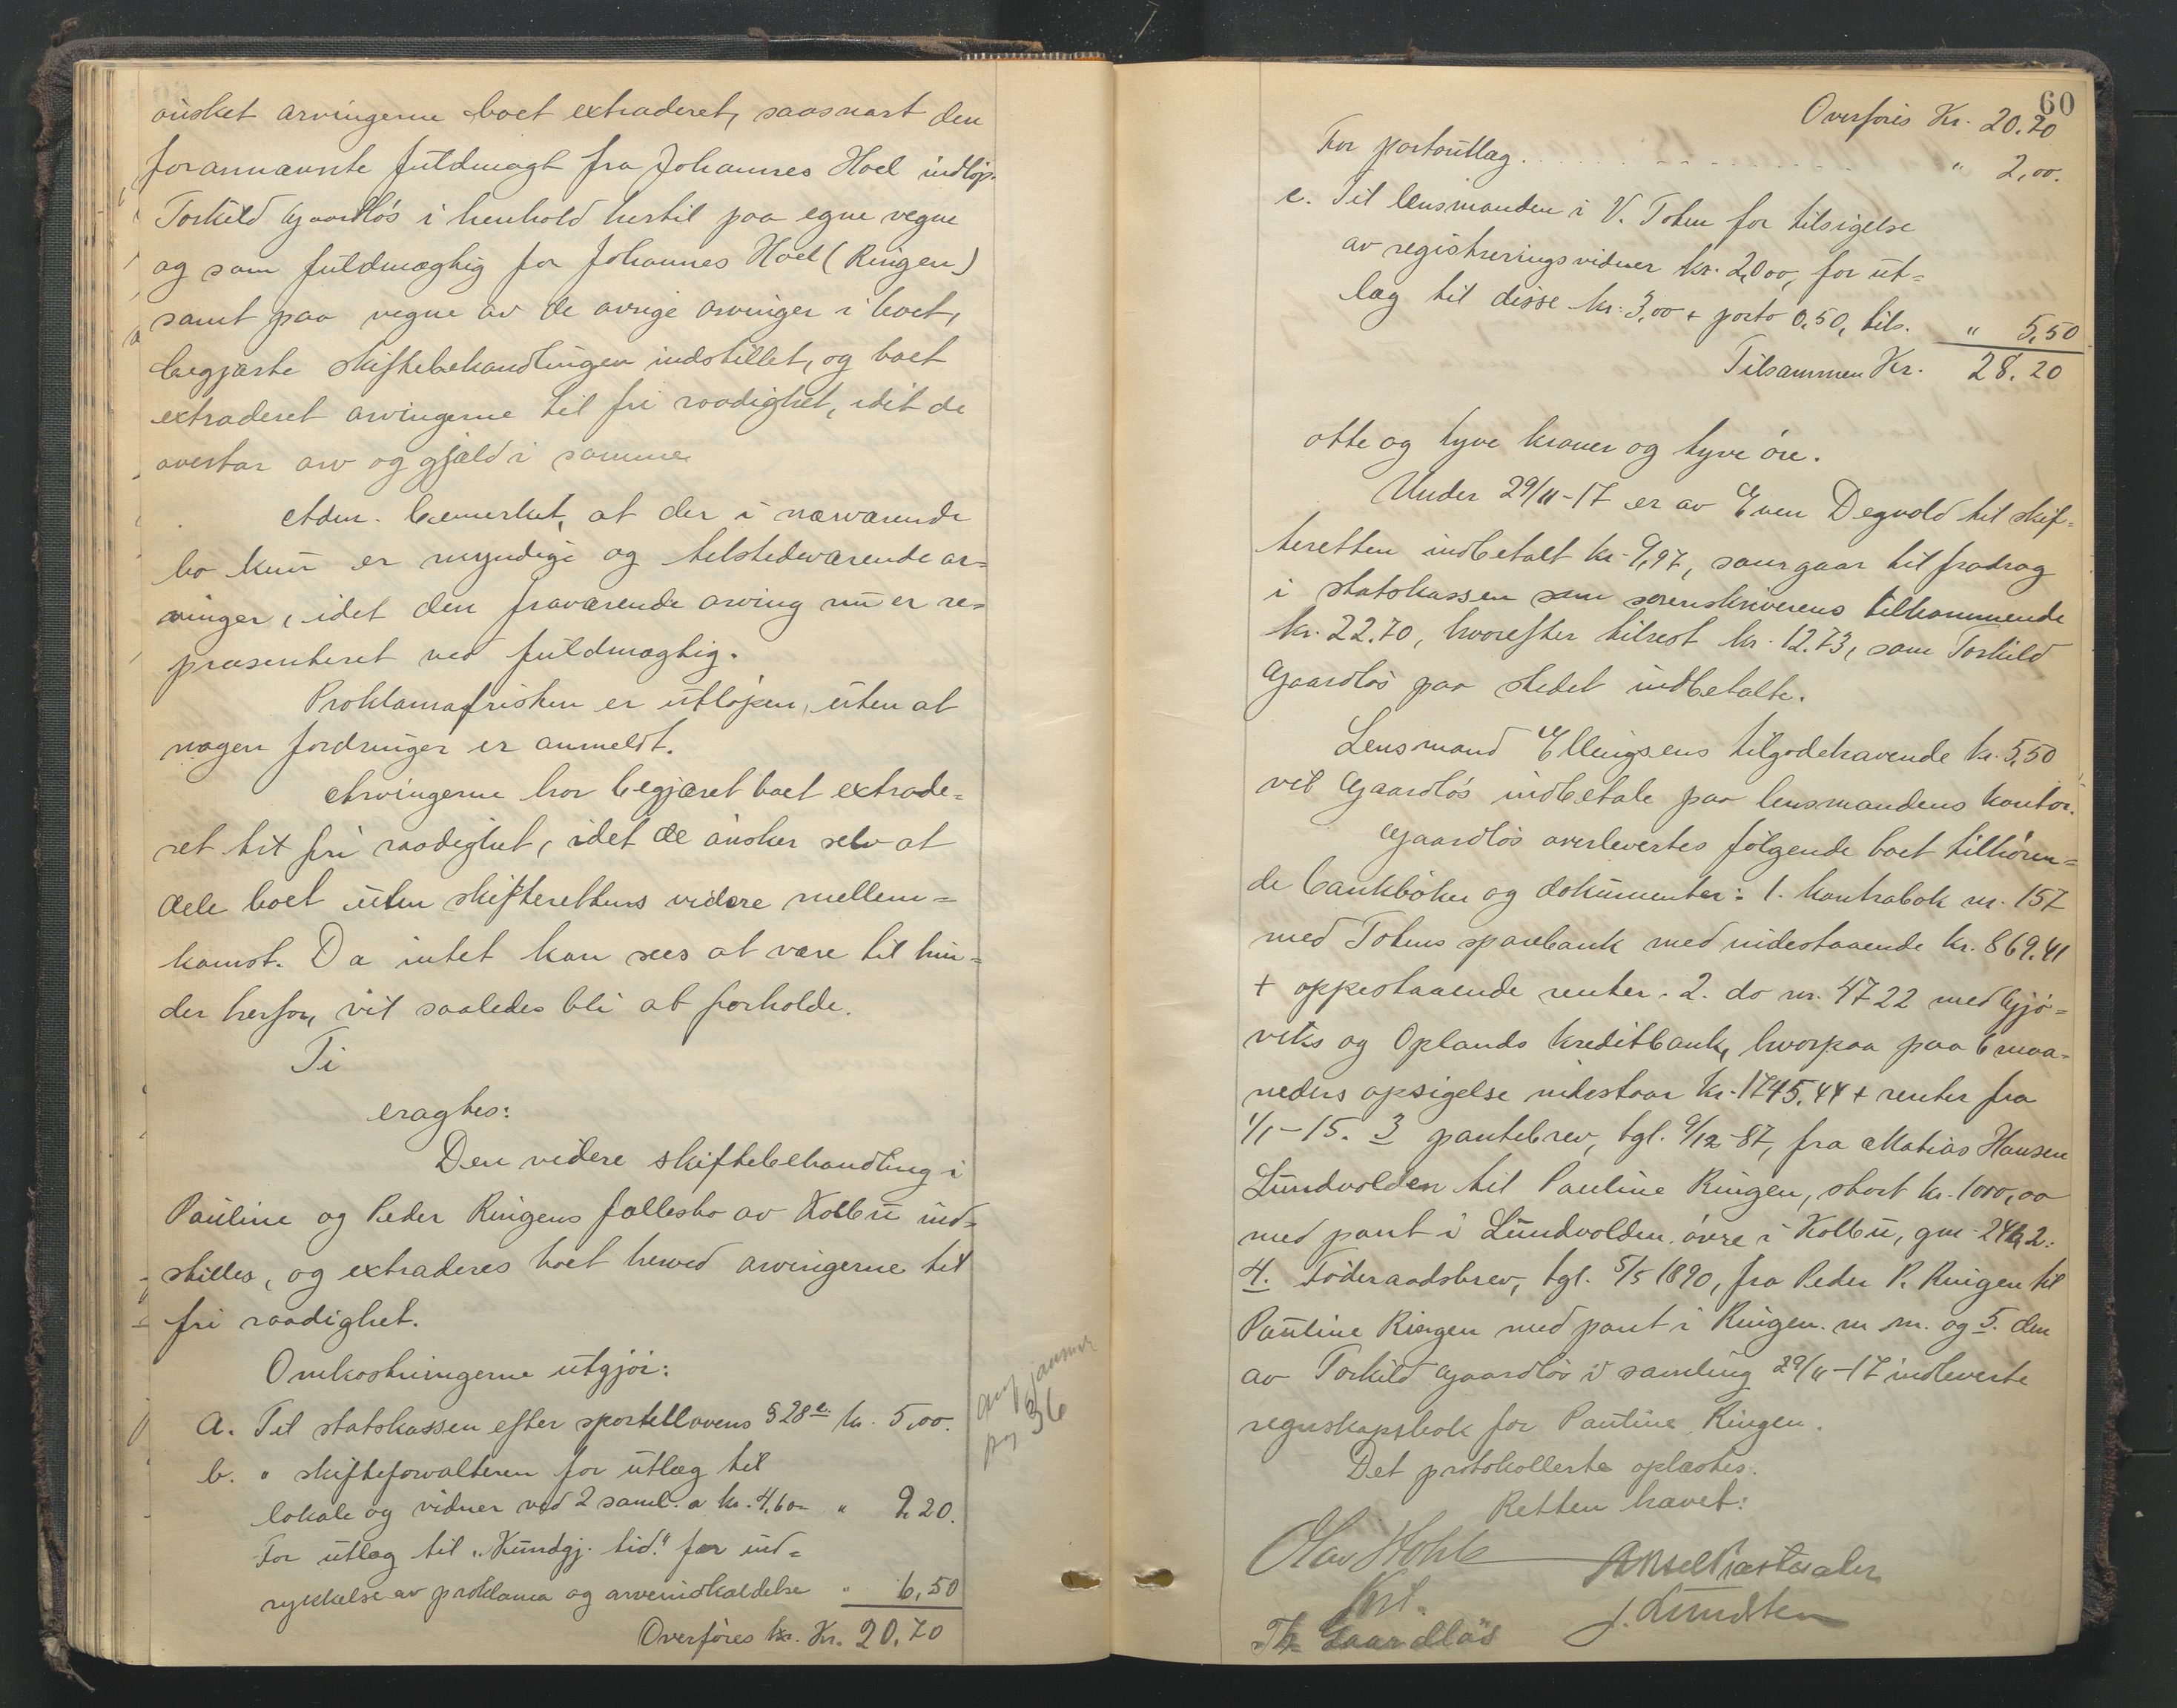 ønsket arvingerne boet extraderet, saasnart den
forannævnte fuldmagt fra Johannes Hoel indløp.
Torkild Gaardløs i henhold hertil paa egne vegne
og som fuldmægtig for Johannes Hoel (Ringen)
samt paa vegne av de øvrige arvinger i boet,
begjærte skiftebehandlingen indstillet, og boet
extraderet arvingerne til fri raadighet, idet de
overtar arv og gjæld i samme.
Adm. bemerket, at der i nærværende
bo kun er myndige og tilstedeværende ar=
vinger, idet den fraværende arving nu er re=
præsenteret ved fuldmægtig.
Proklamafristen er utløpen, uten at
nogen fordringer er anmeldt.
Arvingerne har begjæret boet extrade=
ret til fri raadighet, idet de ønsker selv at
dele boet uten skifterettens videre mellem=
komst. Da intet kan sees at være til hin=
der herfor, vil saaledes bli at forholde.
Ti
eragtes:
Den videre skiftebehandling i
Pauline og Peder Ringens fællesbo av Kolbu ind=
stilles, og extraderes boet herved arvingerne til
fri raadighet.
Omkostningerne utgjør:
a. Til statskassen efter sportellovens § 28 e. kr. 5,00.
b. " skifteforvalteren for utlæg til
lokale og vidner ved 2 saml. a kr. 4,60 " 9,20.
For utlæg til "Kundgj. tid." for ind=
rykkelse av proklama og arveindkaldelse " 6,50
Overføres kr. Kr. 20,70
36
60
Overføres Kr. 20,70
For portoutlæg " 2,00.
c. Til lensmanden i V. Toten for tilsigelse
av registreringsvidner kr. 2,00, for ut=
læg til disse kr. 3,00 + porto 0,50, tils. " 5,50
Tilsammen Kr. 28,20
otte og tyve kroner og tyve øre.
Under 29/11-17 er av Even Degvold til skif=
teretten indbetalt kr. 9,97, som gaar til fradrag
i statskassen som sorenskriverens tilkommende
kr. 22.70, hvorefter tilrest kr. 12.73, som Torkild
Gaardløs paa stedet indbetalte.
Lensmand Ellingsens tilgodehavende kr. 5,50
vil Gaardløs indbetale paa lensmandens kontor.
Gaardløs overlevertes følgende boet tilhøren=
de bankbøker og dokumenter: 1. kontrabok nr. 157
med Totens sparebank med indestaaende kr. 869.41
+ oppestaaende renter. 2. do nr. 4722 med Gjø=
viks og Oplands kreditbank, hvorpaa paa 6 maa=
neders opsigelse indestaar kr. 1745.44 + renter fra
1/1-15. 3 pantebrev, tgl. 9/12-87, fra Matias Hansen
Lundvolden til Pauline Ringen, stort kr. 1000,00
med pant i Lundvolden øvre i Kolbu,
4. Føderaadsbrev, tgl. 5/5 1890, fra Peder P. Ringen til
Pauline Ringen med pant i Ringen m m. og 5. den
av Torkild Gaardløs i samling 29/11-17 indleverte
regnskapsbok for Pauline Ringen.
Det protokollerte oplæstes.
Retten hævet:
Olav Stokke
Kst.
J. Lundsten
Th Gaardløs